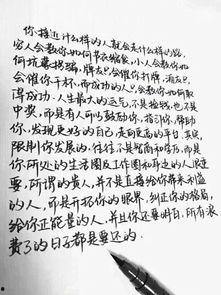 你接近什么样的人就会走什么样的路,
穷人会教你如何节衣缩食,小人会教你如
何坑蒙拐骗,牌友只会催你打牌,酒友只
会催你干杯,而成功的人只会教你如何取
得成功。人生最大的运气,不是捡钱,也不是
中奖,而是有人可以鼓励你,指引你,帮助
你,发现更好的自己,走向更高的平台。其实,
限制你发展的,往往不是智商和学历,而是
你所处的生活圈及工作圈和身边的人很重
要,所谓的贵人,并不是直接给你带来利益
的人,而是开拓你的眼界,纠正你的格局,
给你正能量的人,并且你还要明白,所有浪
费了的日子都是要还的。